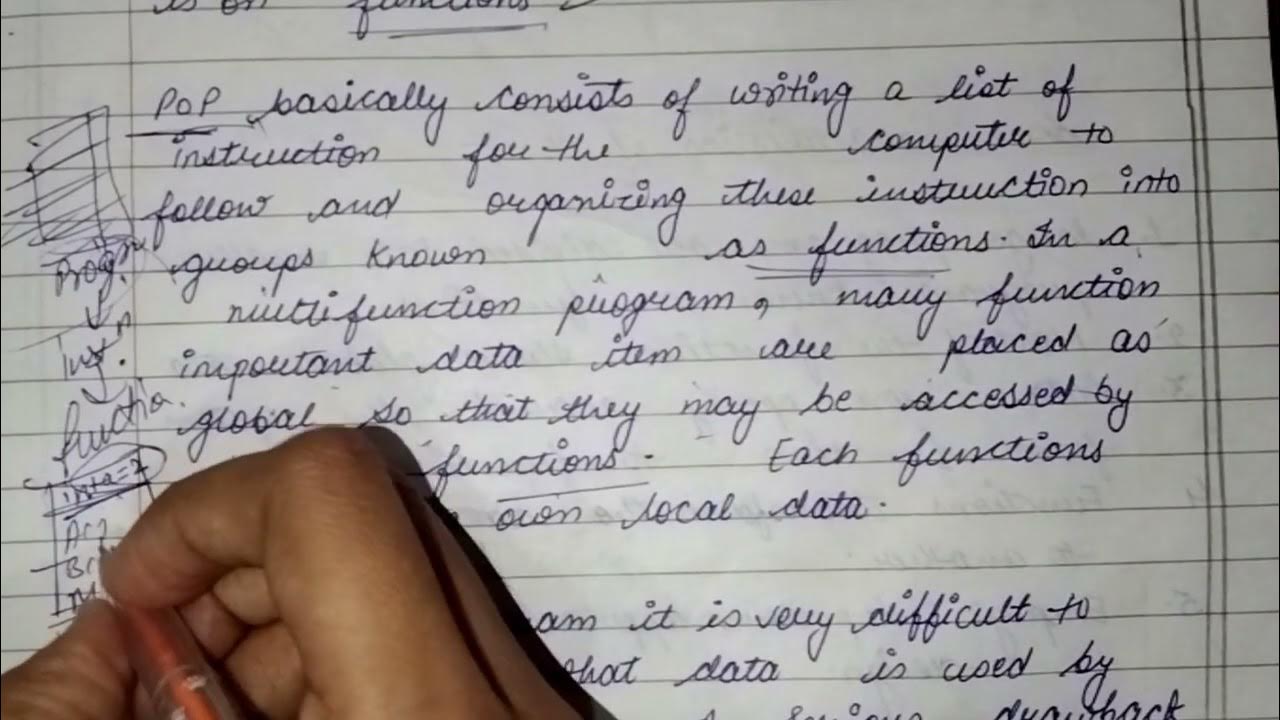 is on functions
POP basically consists of writing a list of
instruction for the computer to
follow and organizing these instruction into
groups known as functions. In a
multifunction program, many function
important data item are placed as
global so that they may be accessed by
functions. Each functions
own local data.
am it is very difficult to
that data is used by
serious drawback
Prog.
Inst.
functn.